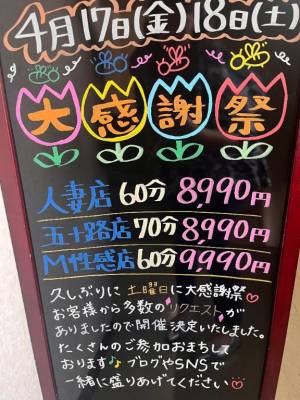 4月17日(金)18日(土)
大感謝祭
人妻店 60分 8,990円
五十路店 70分 8,990円
M性感店 60分 9,990円
久しぶりに土曜日に大感謝祭♡
お客様から多数の"リクエスト"が
ありましたので開催決定いたしました。
たくさんのご参加おまちして
おります♪ ブログやSNSで
一緒に盛りあげてください♡